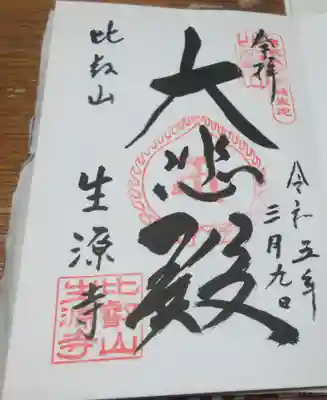 奉拝
令和五年
三月九日
大悲殿
比叡山
生源寺
比叡山
生源寺